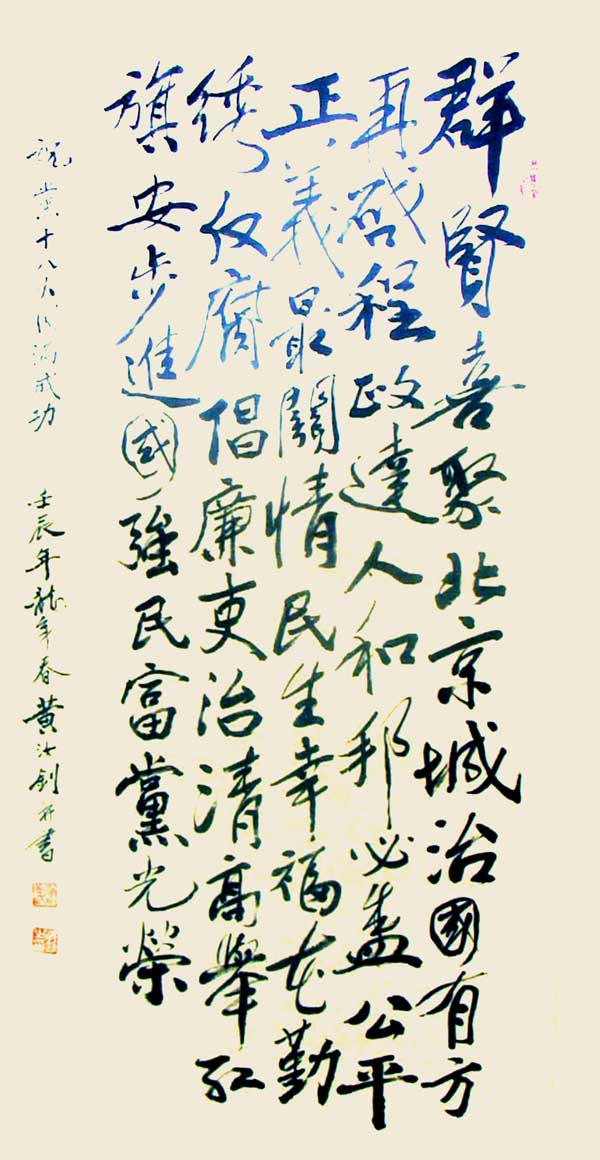 群賢喜聚北京城治國有方
再啟程政達人和邦必盛公平
正義最關情民生幸福在勤
繡反腐倡廉吏治清高舉红
旗安步進國強民富黨光榮
祝黨十八大圓滿成功 壬辰年龍年春黄汝書